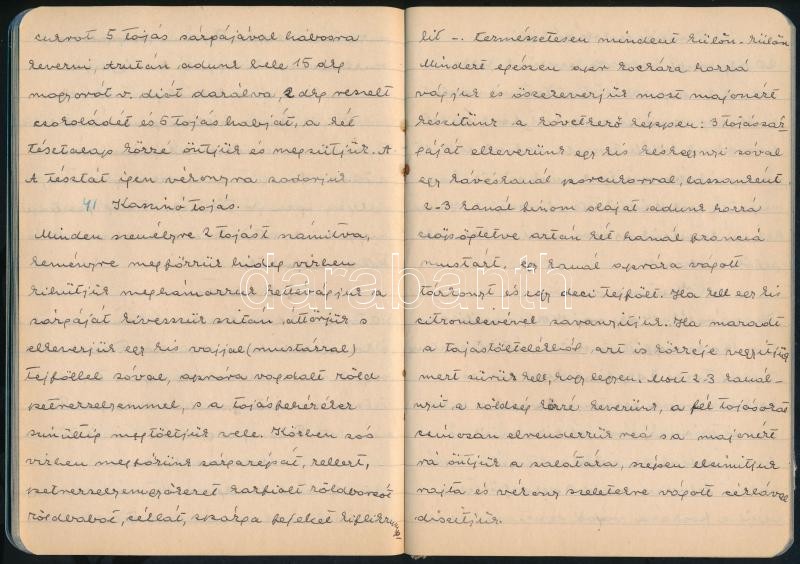 cukrot 5 tojás sárgájával habosra
keverni, azután adunk bele 15 dkg
mogyorót v. diót darálva, 2 dkg reszelt
csokoládét és 6 tojás habját, a két
tésztalap közzé öntjük és megsütjük. A
A tésztát igen vékonyra sodorjuk
41 Kaszinó tojás.
Minden személyre 2 tojást számítva,
keményre megfőzzük hideg vízben
kihűtjük meghámozzuk kettévágjuk a
sárgáját kivesszük szitán áttörjük s
elkeverjük egy kis vajjal (mustárral)
tejföllel sóval, apróra vagdalt zöld
petrezselyemmel, s a tojásfehérékez
színültig megtöltjük vele. Közben sós
vízben megfőzünk sárgarépát, zellert,
petrezselyemgyökeret karfiolt zöldborsót
zöldbabot, céklát, spárga fejeket kiflikrumpli
lit -. természetesen mindent külön-külön
Mindezt egészen apr kockára hozzá
vágjuk és összekeverjük most majonézt
készítünk a következő képpen: 3 tojássár
gáját elkeverünk egy kis késhegynyi sóval
egy kávéskanál porcukorral, lassanként
2-3 kanál finom olajat adunk hozzá
csöpöptetve aztán két kanál francia
mustárt, egy kanál apróra vágott
tárkonyt és egy deci tejfölt. Ha kell egy kis
citromlevével savanyítjuk. Ha maradt
a tojástöltelékből, azt is közzéje vegyítjük
mert sűrűe kell, hogy legyen. Most 2-3 kanál-
nyit, a zöldség közzé keverünk, a fél tojásokat
csinosan elrendezzük reá s a majonézt
rá öntjük a salátára, szépen elsimítjuk
rajta és vékony szeletekre vágott céklával
díszítjük.
darabanth